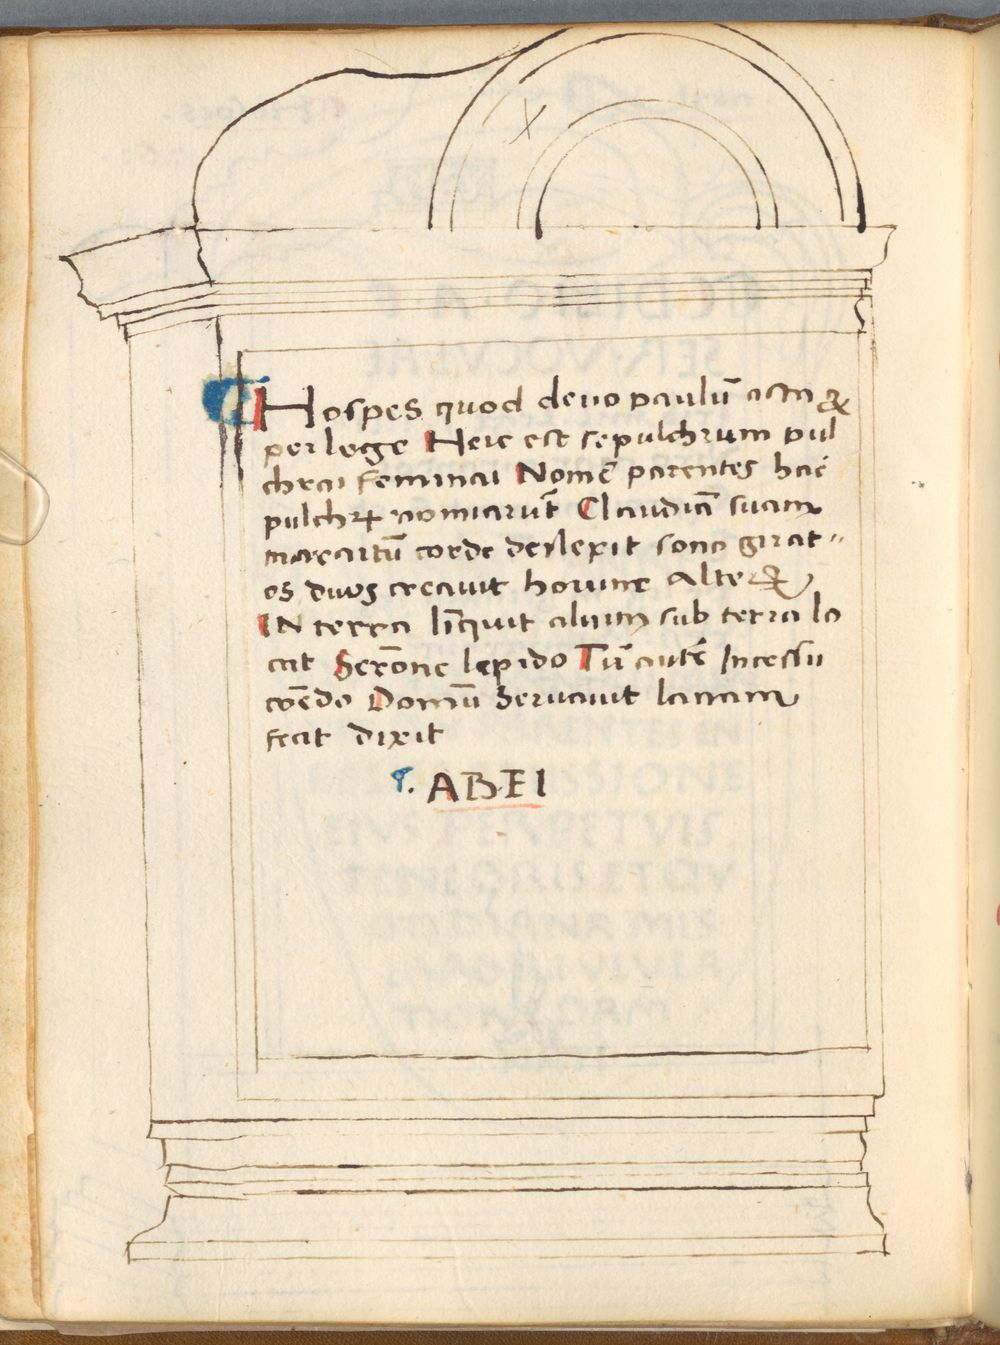 Hospes quod deuo paulū asta &
perlege Heic est sepulchrum pul
chrai feminai Nomē parentes hać
pulchr nomiarūt Claudiā suam
maxartū corde deilexit sono gnat
os duos creauit horunc Alter
IN terra līquit alium sub terra lo
cat Sermōne lepido Tū autē Incessu
cōmōdo Domū Seruauit lanam
fecit dixit
ABEI